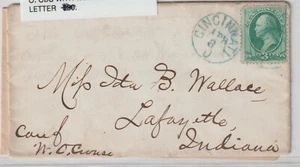 LETTER
CINCINNATI
APR
8
O.
Miss Ida B. Wallace
Lafayette,
Indiana
Care of
W. C. Crouse